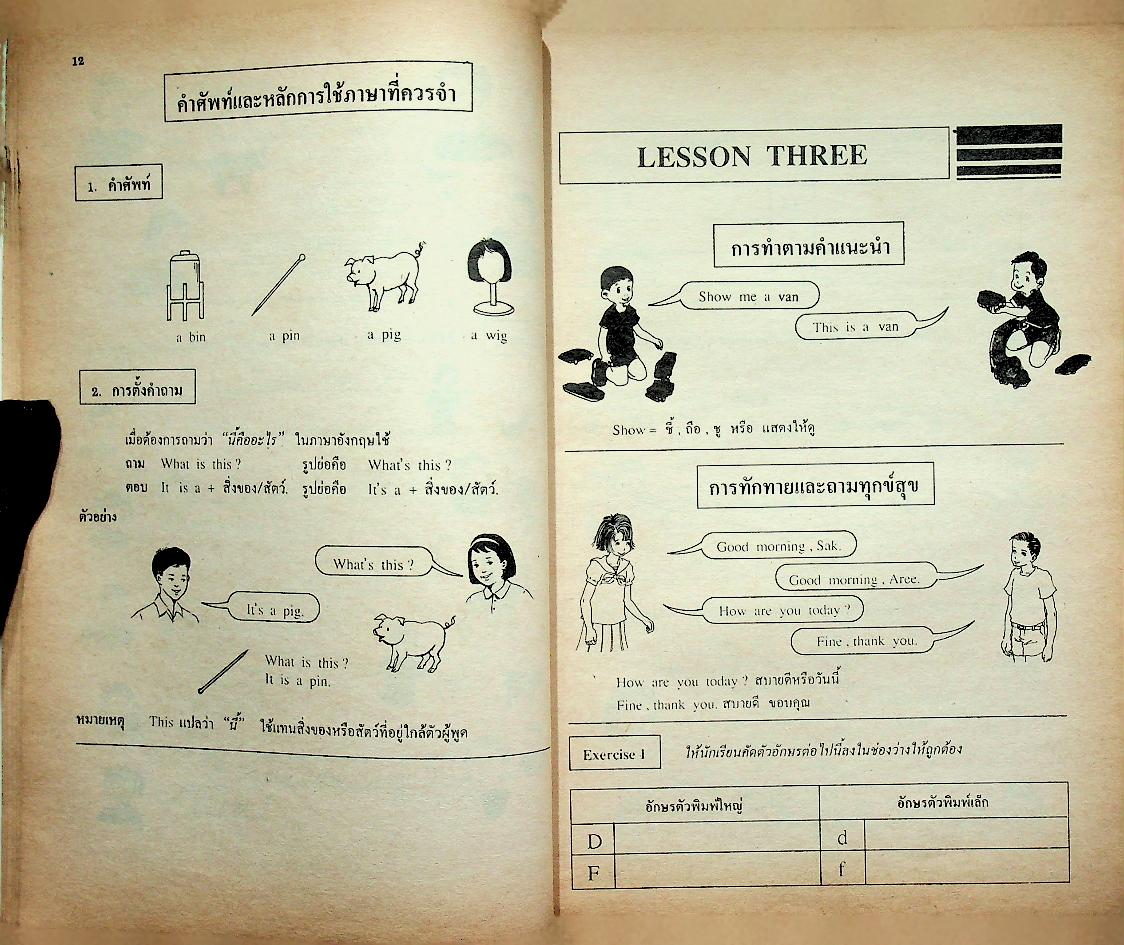 12
คำศัพท์และหลักการใช้ภาษาที่ควรจำ
1. คำศัพท์
a bin a pin a pig a wig
2. การตั้งคำถาม
เมื่อต้องการถามว่า "นี้คืออะไร" ในภาษาอังกฤษใช้
ถาม What is this ? รูปย่อคือ What's this ?
ตอบ It is a + สิ่งของ/สัตว์. รูปย่อคือ It's a + สิ่งของ/สัตว์.
ตัวอย่าง
What's this ?
It's a pig.
What is this ?
It is a pin.
หมายเหตุ This แปลว่า "นี้" ใช้แทนสิ่งของหรือสัตว์ที่อยู่ใกล้ตัวผู้พูด
LESSON THREE
การทำตามคำแนะนำ
Show me a van
This is a van
Show = ชี้ , ถือ , ชู หรือ แสดงให้ดู
การทักทายและถามทุกข์สุข
Good morning , Sak.
Good morning , Aree.
How are you today ?
Fine , thank you.
How are you today ? สบายดีหรือวันนี้
Fine , thank you. สบายดี ขอบคุณ
Exercise 1 ให้นักเรียนคัดตัวอักษรต่อไปนี้ลงในช่องว่างให้ถูกต้อง
อักษรตัวพิมพ์ใหญ่ อักษรตัวพิมพ์เล็ก
D d
F f